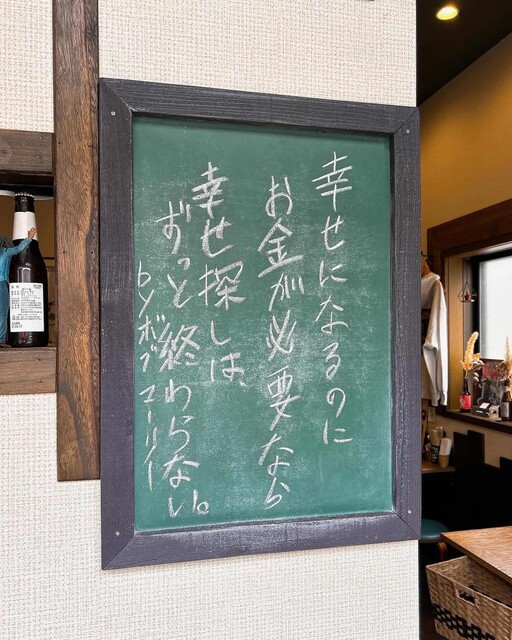 幸せになるのに
お金が必要なら
幸せ探しは、
ずっと終わらない。
byボブ マーリー